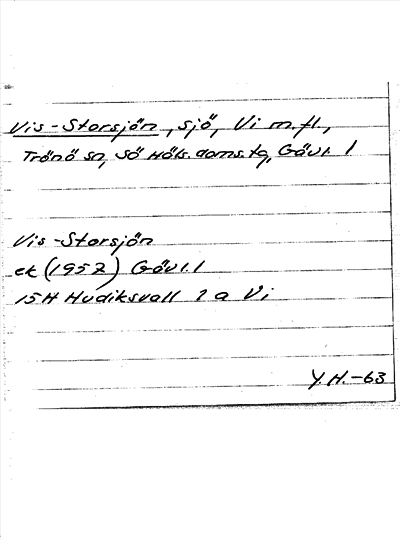 Vis-Storsjön, sjö, Vi m.fl.,
Trönö sn, Sö Häls. doms.tg, Gävl. l
Vis-Storsjön
ek (1957) Gävl. l
15H Hudiksvall 1 a Vi
Y.H.-63